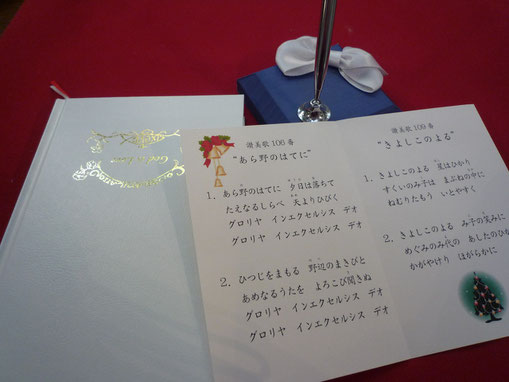 God is Love
讃美歌 106番
"あら野のはてに"
1. あら野のはてに 夕日は落ちて
たえなるしらべ 天よりひびく
グロリヤ インエクセルシス デオ
グロリヤ インエクセルシス デオ
2. ひつじをまもる 野辺のまきびと
あめなるうたを よろこび聞きぬ
グロリヤ インエクセルシス デオ
グロリヤ インエクセルシス デオ
讃美歌 109番
"きよしこのよる"
1. きよしこのよる 星はひかり
すくいのみ子は まぶねの中に
ねむりたもう いとやすく
2. きよしこのよる み子の笑みに
めぐみのみ代の あしたのひか
かがやけり ほがらかに